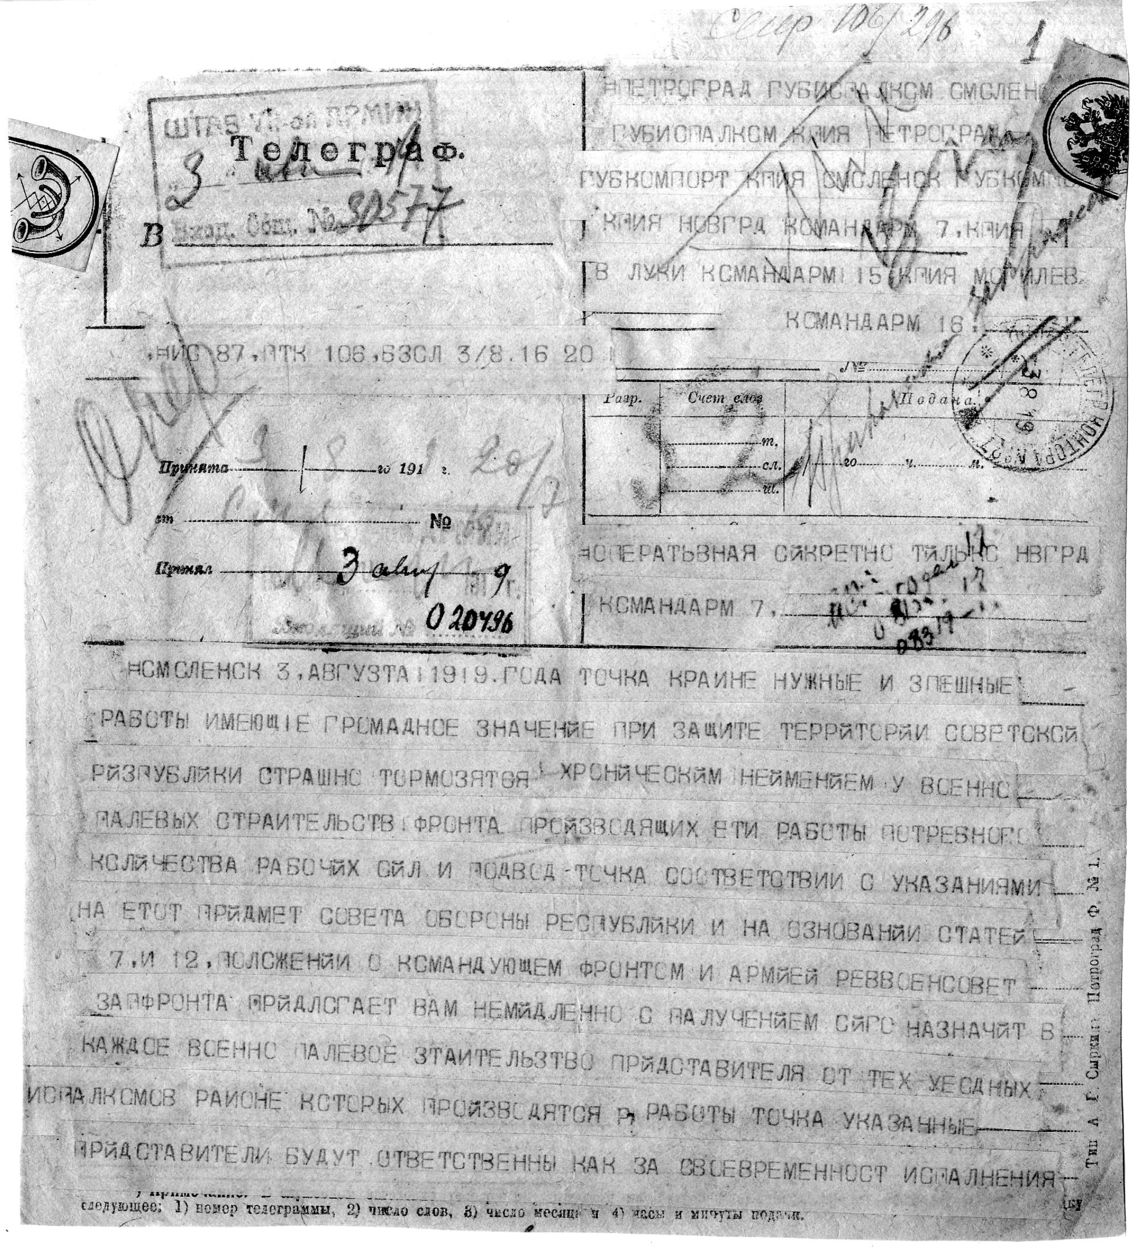 106/296
1
ПЕТРОГРАД ГУБИСПАЛКОМ СМОЛЕН
ГУБИСПАЛКОМ КПИЯ ПЕТРОГРАД
ГУБКОМПОРТ КПИЯ СМОЛЕНСК ГУБКОМП
КПИЯ НОВГРД КОМАНДАРМ 7, КПИЯ
В ЛУКИ КОМАНДАРМ 15 КПИЯ МОГИЛЕВ
КОМАНДАРМ 16
ШТАБ VII-ой АРМИИ
Телеграф.
3
В
Вход. Общ. № 30577
НИС 87, ПТК 106, БЗСЛ 3/8. 16 20
Опер
№
Разр.
Счет слов
Подана
т.
сл.
ш.
го ч. м.
3 8 19
Принята 3 8 го 191 г. 20/7
от №
Принял 3 авг 9
Входящий № 020496
ОПЕРАТЬВНАЯ СЙКРЕТНО ТЙЛЬКО НВГРД
КОМАНДАРМ 7,
СМОЛЕНСК 3, АВГУСТА 1919. ГОДА ТОЧКА КРАИНЕ НУЖНЫЕ И ЗПЕШНЫЕ
РАБОТЫ ИМЕЮЩIЕ ГРОМАДНОЕ ЗНАЧЕНЙЕ ПРИ ЗАЩИТЕ ТЕРРЙТОРЙИ СОВЕТСКОЙ
РЙЗПУБЛЙКИ СТРАШНО ТОРМОЗЯТСЯ ХРОНЙЧЕСКЙМ НЕЙМЕНЙЕМ У ВОЕННО
ПАЛЕВЫХ СТРАИТЕЛЬСТВ ФРОНТА ПРОЙЗВОДЯЩИХ ЕТИ РАБОТЫ ПОТРЕБНОГО
КОЛЙЧЕСТВА РАБОЧЙХ СЙЛ И ПОДВОД ТОЧКА СООТВЕТСТВИИ С УКАЗАНИЯМИ
НА ЕТОТ ПРЙДМЕТ СОВЕТА ОБОРОНЫ РЕСПУБЛЙКИ И НА ОЗНОВАНЙИ СТАТЕЙ
7, И 12, ПОЛОЖЕНЙИ О КОМАНДУЮЩЕМ ФРОНТОМ И АРМИЕЙ РЕВВОЕНСОВЕТ
ЗАПФРОНТА ПРЙДЛОГАЕТ ВАМ НЕМЙДЛЕННО С ПАЛУЧЕНЙЕМ СЙГО НАЗНАЧЙТ В
КАЖДОЕ ВОЕННО ПАЛЕВОЕ ЗТАИТЕЛЬЗТВО ПРЙДСТАВИТЕЛЯ ОТ ТЕХ УЕСДНЫХ
ИСПАЛКОМОВ РАИОНЕ КОТОРЫХ ПРОЙЗВОДЯТСЯ РАБОТЫ ТОЧКА УКАЗАННЫЕ
ПРЙДСТАВИТЕЛИ БУДУТ ОТВЕТСТВЕННЫ КАК ЗА СВОЕВРЕМЕННОСТ ИСПАЛНЕНИЯ
следующее: 1) номер телеграммы, 2) число слов, 3) число месяца и 4) часы и минуты подачи.
Петроград Ф. № 1.